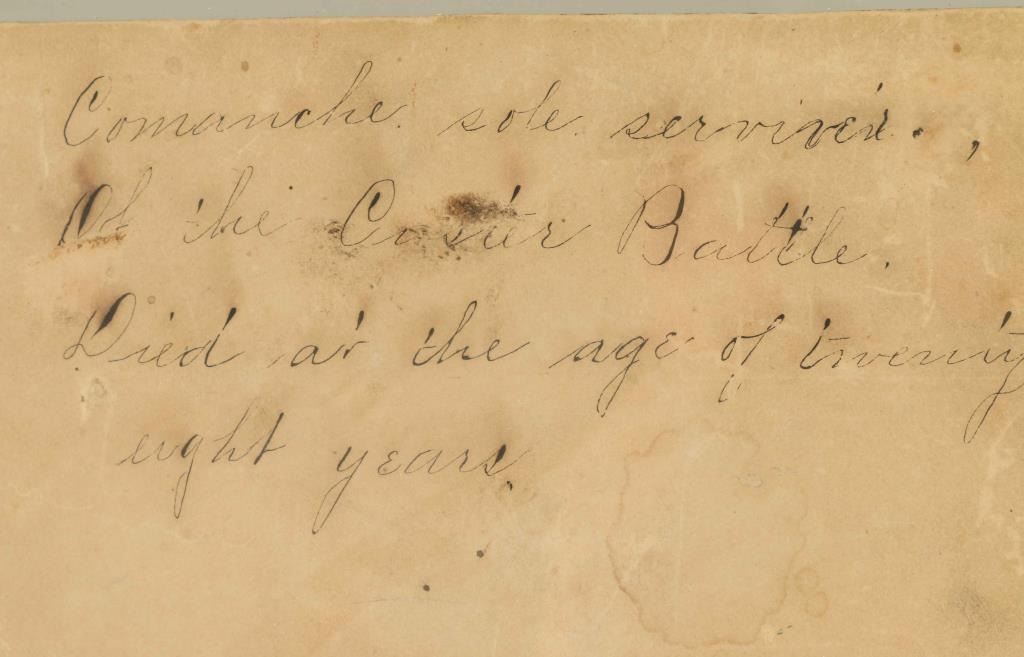 Comanche sole serviver.,
Of the Custer Battle.
Died at the age of twenty
eight years.